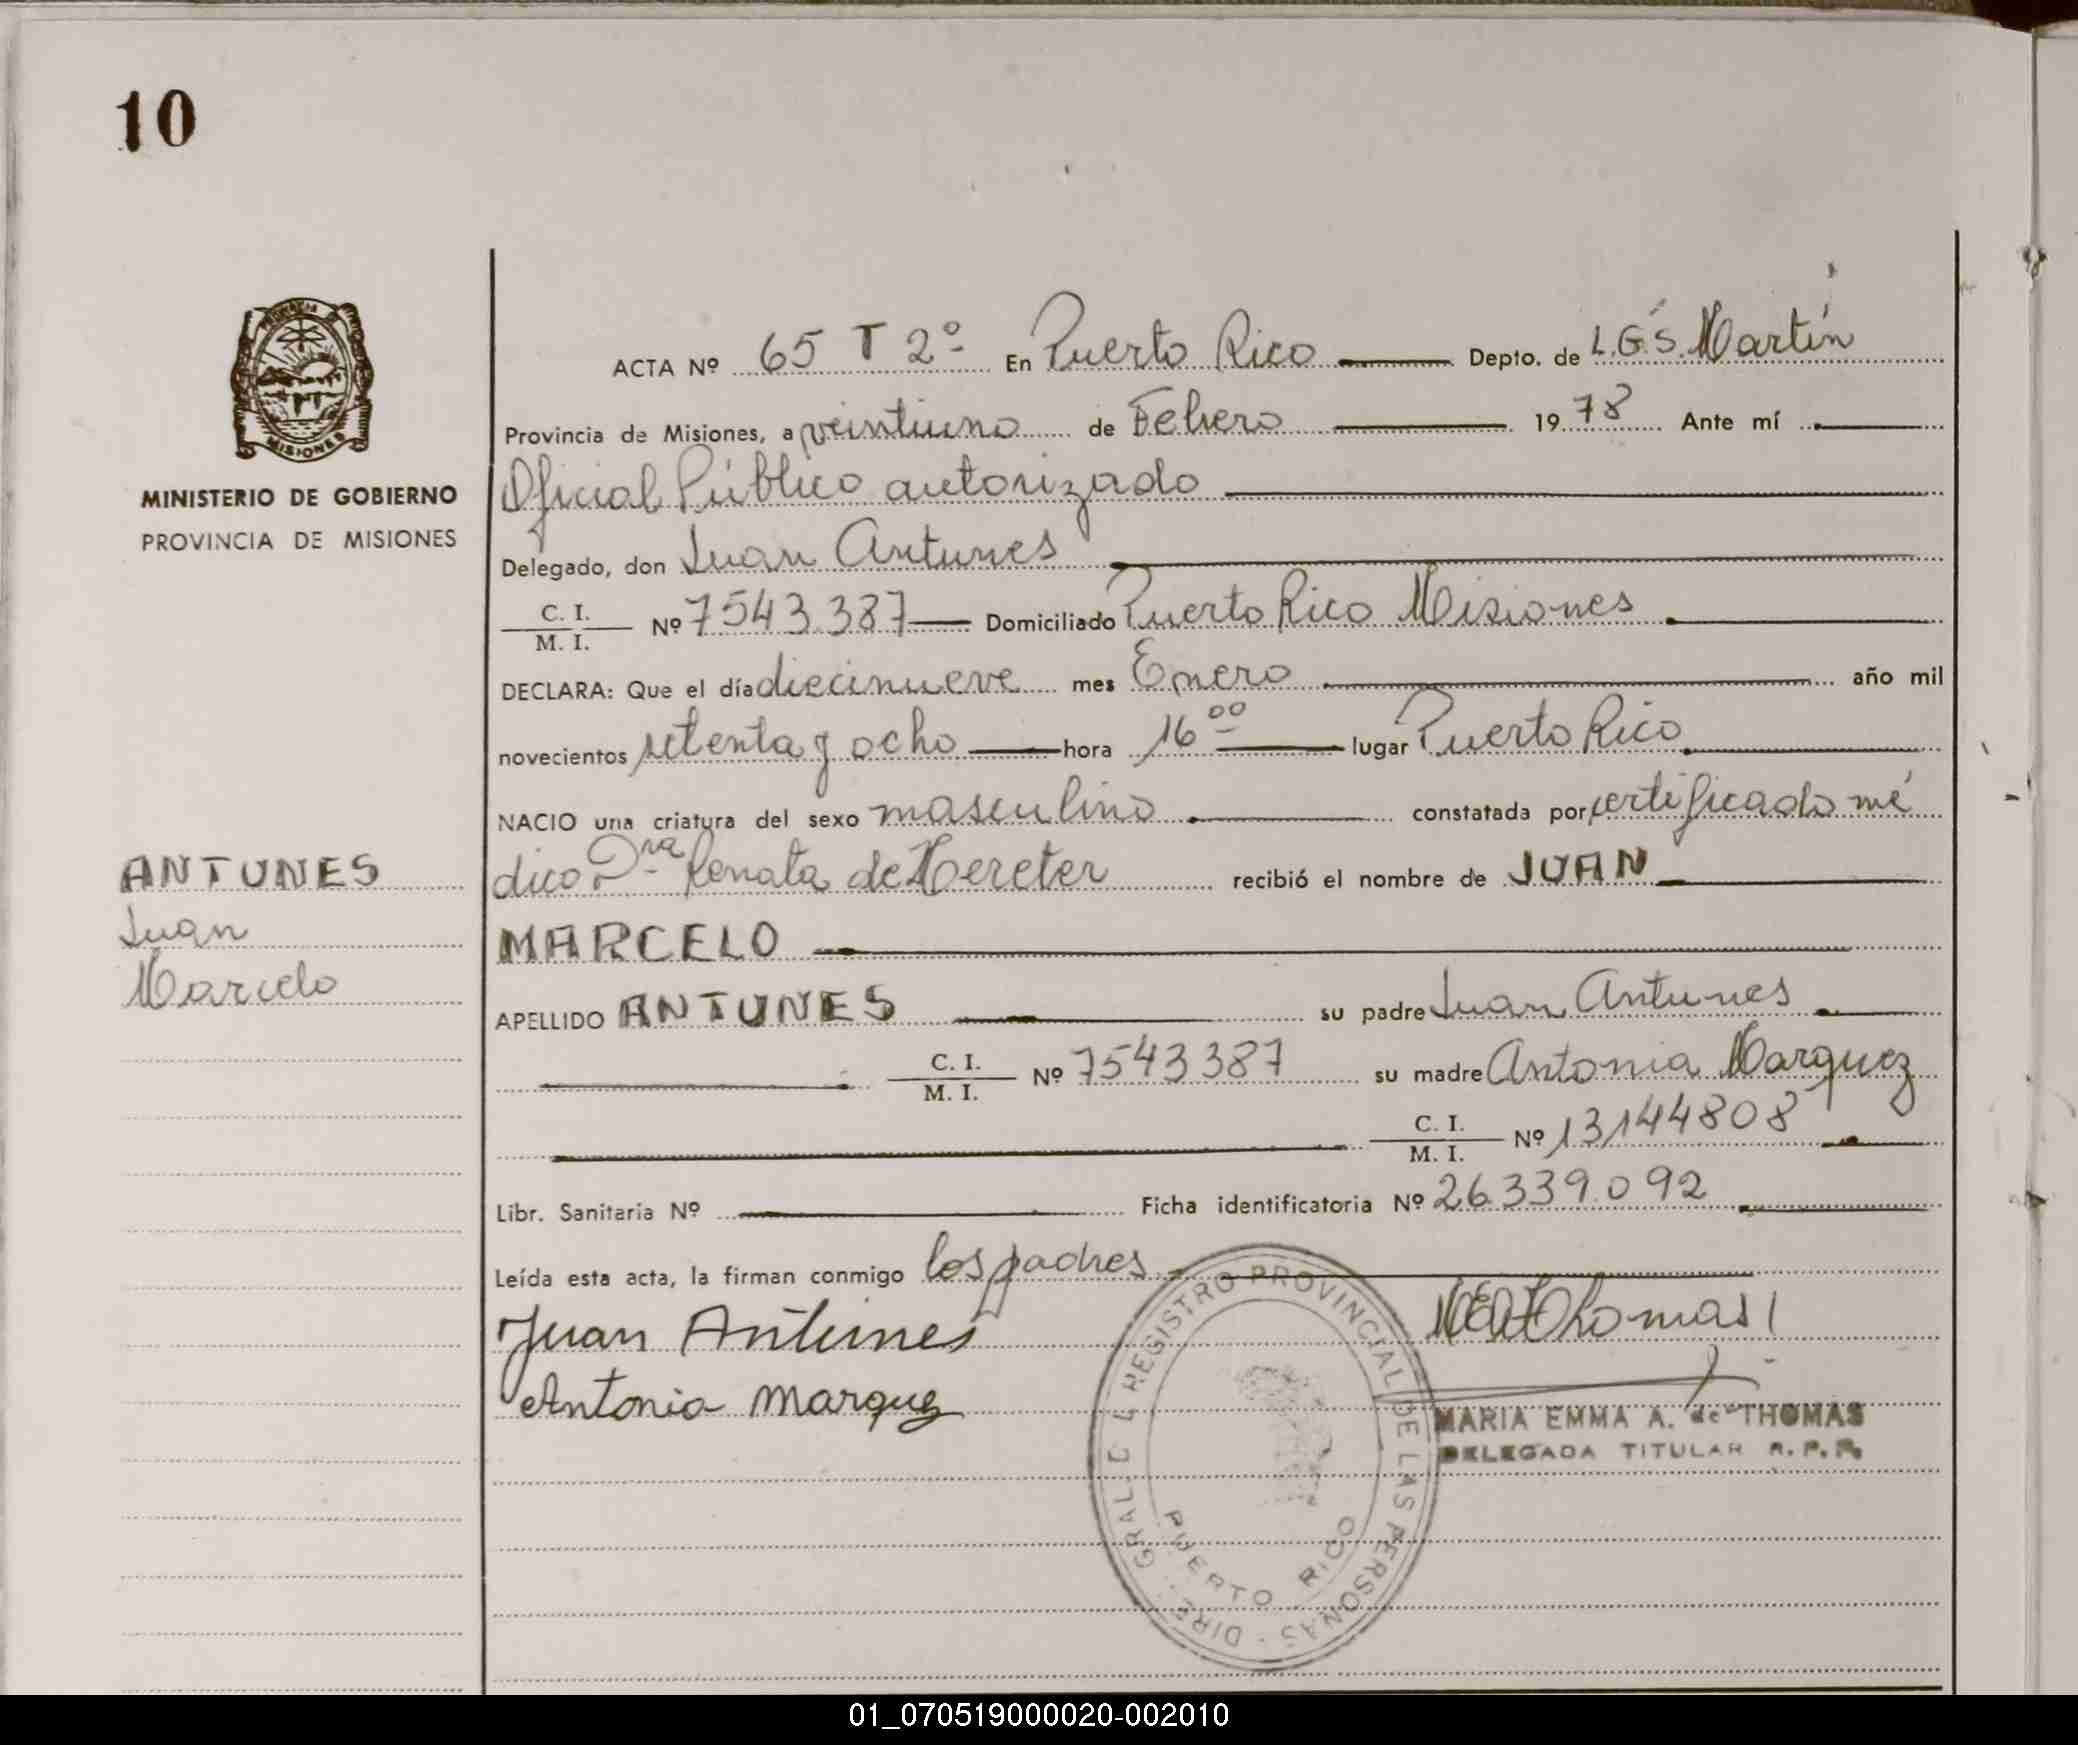 10
PROVINCIA DE
MISIONES
MINISTERIO DE GOBIERNO
PROVINCIA DE MISIONES
ANTUNES
Juan
Marcelo
ACTA Nº 65 T 2º En Puerto Rico Depto. de L.G.S. Martín
Provincia de Misiones, a veintiuno de Febrero 19 78 Ante mí
Oficial Público autorizado
Delegado, don Juan Antunes
C. I.
M. I. Nº 7543.387 Domiciliado Puerto Rico Misiones
DECLARA: Que el día diecinueve mes Enero año mil
novecientos setenta y ocho hora 16 00 lugar Puerto Rico
NACIO una criatura del sexo masculino constatada por certificado mé
dico Dra Renata de Hereter recibió el nombre de JUAN
MARCELO
APELLIDO ANTUNES su padre Juan Antunes
C. I.
M. I. Nº 7543387 su madre Antonia Marquez
C. I.
M. I. Nº 13144808
Libr. Sanitaria Nº Ficha identificatoria Nº 26.339.092
Leída esta acta, la firman conmigo los padres
Juan Antunes
Antonia Marquez
MEAThomas
MARIA EMMA A. de THOMAS
DELEGADA TITULAR R. P. P.
DIRE. GRAL. D L REGISTRO PROVINCIAL DE LAS PERSONAS
PUERTO RICO
01_070519000020-002010